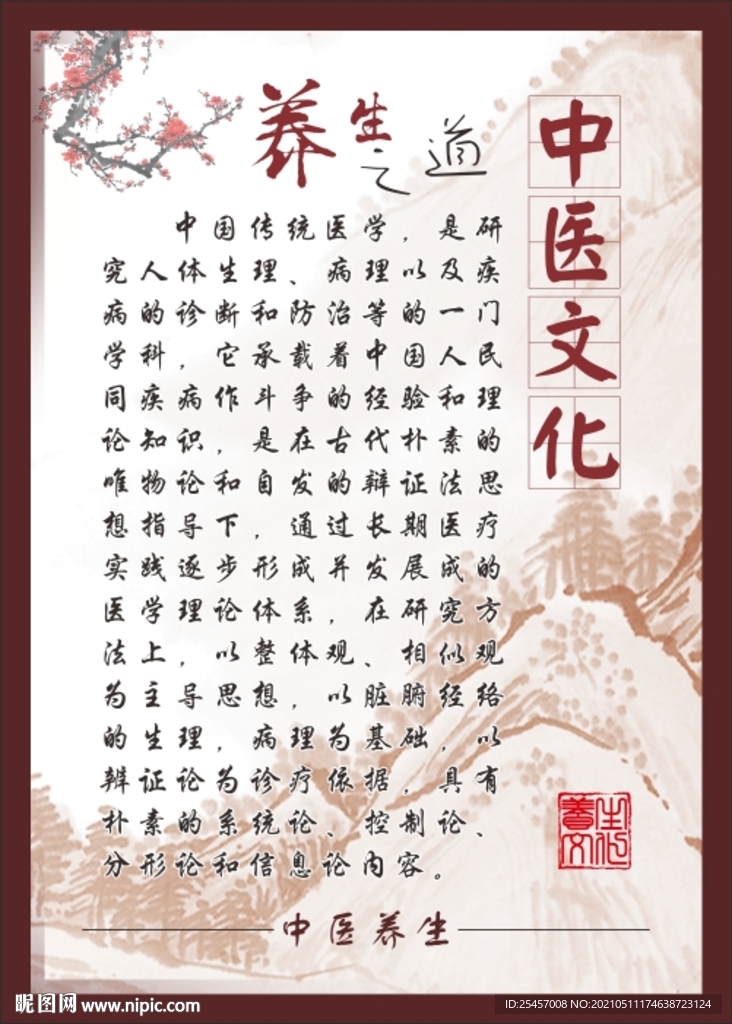 养生之道
中医文化
中国传统医学，是研
究人体生理、病理以及疾
病的诊断和防治等的一门
学科，它承载着中国人民
同疾病作斗争的经验和理
论知识，是在古代朴素的
唯物论和自发的辩证法思
想指导下，通过长期医疗
实践逐步形成并发展成的
医学理论体系，在研究方
法上，以整体观、相似观
为主导思想，以脏腑经络
的生理，病理为基础，以
辨证论为诊疗依据，具有
朴素的系统论、控制论、
分形论和信息论内容。
中医养生
昵图网 www.nipic.com
ID:25457008 NO:20210511174638723124